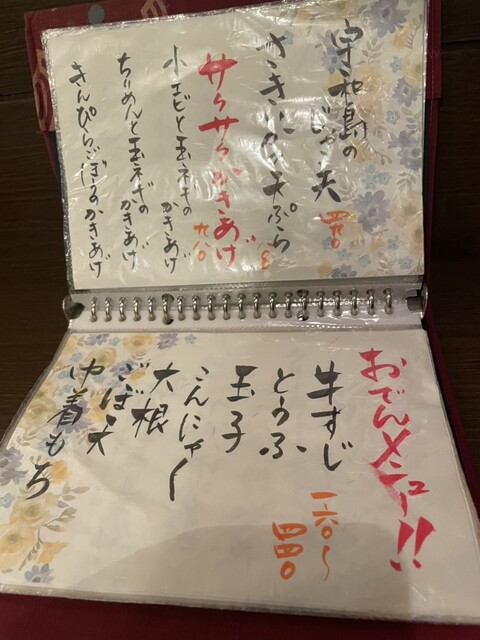 宇和島の
じゃこ天
四九〇
さきいかの天ぷら
サクサクかきあげ
九八〇
小エビと玉ネギの
かきあげ
ちりめんと玉ネギの
かきあげ
きんぴらごぼうのかきあげ
おでんメニュー!!
牛すじ
とうふ
一六〇〜
四四〇
玉子
こんにゃく
大根
ごぼ天
巾着もち